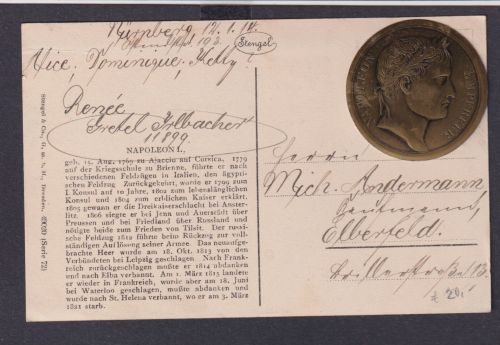 Nürnberg, 12.1.14.
Stengel
Vice, Dominique, Ketty!
Renée
Gretel Irlbacher
11899.
NAPOLEON I.,
geb. 15. Aug. 1769 zu Ajaccio auf Corsica, 1779
auf der Kriegsschule zu Brienne, führte er nach
verschiedenen Feldzügen in Italien, den ägypti-
schen Feldzug. Zurückgekehrt, wurde er 1799 zum
I. Konsul auf 10 Jahre, 1802 zum lebenslänglichen
Konsul und 1804 zum erblichen Kaiser erklärt.
1805 gewann er die Dreikaiserschlacht bei Auster-
litz. 1806 siegte er bei Jena und Auerstädt über
Preussen und bei Friedland über Russland und
nötigte beide zum Frieden von Tilsit. Der rus-
sische Feldzug 1812 führte beim Rückzug zur voll-
ständigen Auflösung seiner Armee. Das neuaufge-
brachte Heer wurde am 18. Okt. 1813 von den
Verbündeten bei Leipzig geschlagen. Nach Frank-
reich zurückgeschlagen musste er 1814 abdanken
und nach Elba verbannt. Am 1. März 1815 landete
er wieder in Frankreich, wurde aber am 18. Juni
bei Waterloo geschlagen, mußte abdanken und
wurde nach St. Helena verbannt, wo er am 5. März
1821 starb.
Stengel & Co., G. m. b. H., Dresden. (Serie 72)
NAPOLEON
Herrn
Mich. Andermann,
Kaufmann,
Elberfeld.
20,